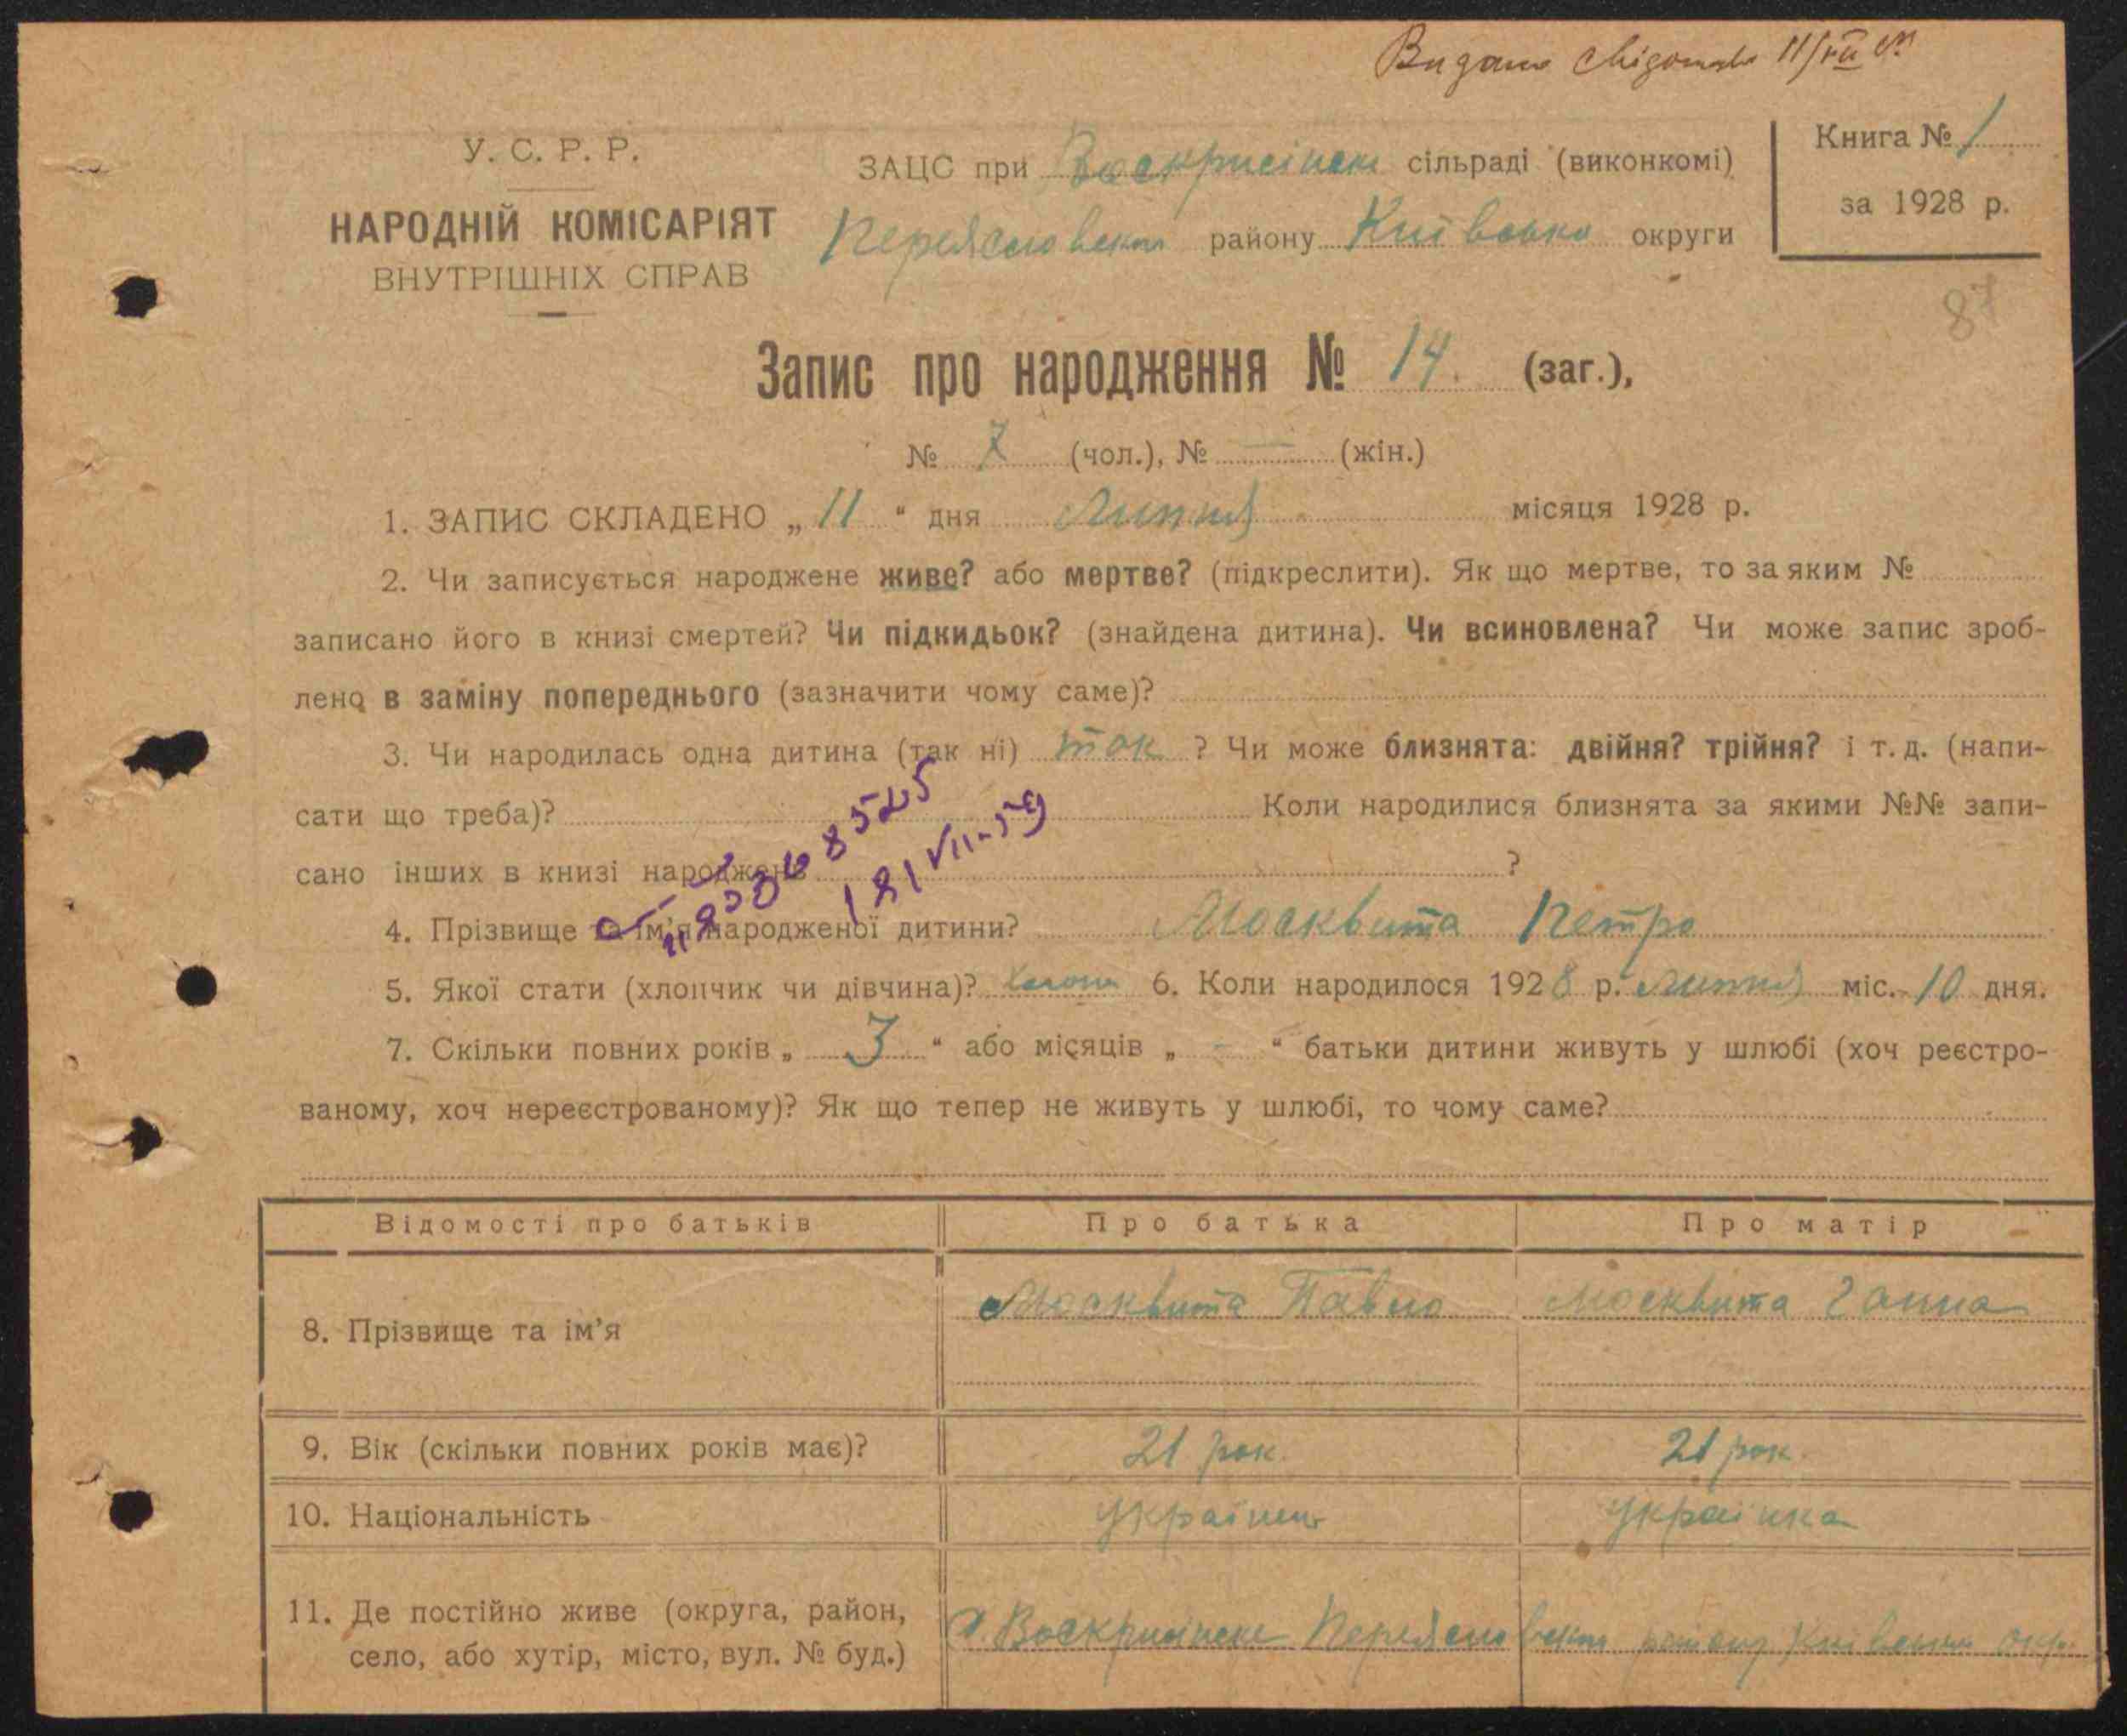 Видано 11/VII
У. С. Р. Р.
НАРОДНІЙ КОМІСАРІЯТ
ВНУТРІШНІХ СПРАВ
ЗАЦС при Воскрисінскі сільраді (виконкомі)
Переяславском району Київсько округи
Книга № 1
за 1928 р.
87
Запис про народження № 14. (заг.),
№ 7 (чол.), № — (жін.)
1. ЗАПИС СКЛАДЕНО „ 11 “ дня Липня місяця 1928 р.
2. Чи записується народжене живе? або мертве? (підкреслити). Як що мертве, то за яким №
записано його в книзі смертей? Чи підкидьок? (знайдена дитина). Чи всиновлена? Чи може запис зроб-
лено в заміну попереднього (зазначити чому саме)?
3. Чи народилась одна дитина (так ні) так ? Чи може близнята: двійня? трійня? і т. д. (напи-
сати що треба)? Коли народилися близнята за якими №№ запи-
сано інших в книзі народжень ?
18/VII-59
4. Прізвище та ім’я народженої дитини? Москвита Петро
5. Якої стати (хлопчик чи дівчина)? хлопч 6. Коли народилося 1928 р. Липня міс. 10 дня.
7. Скільки повних років „ 3 “ або місяців „ - “ батьки дитини живуть у шлюбі (хоч реєстро-
ваному, хоч нереєстрованому)? Як що тепер не живуть у шлюбі, то чому саме?
Відомості про батьків Про батька Про матір
8. Прізвище та ім’я Москвита Павло Москвита Ганна
9. Вік (скільки повних років має)? 21 рок. 21 рок.
10. Національність Українец Українка
11. Де постійно живе (округа, район,
село, або хутір, місто, вул. № буд.)
с. Воскрисінске Переяславском району Київськи окр.